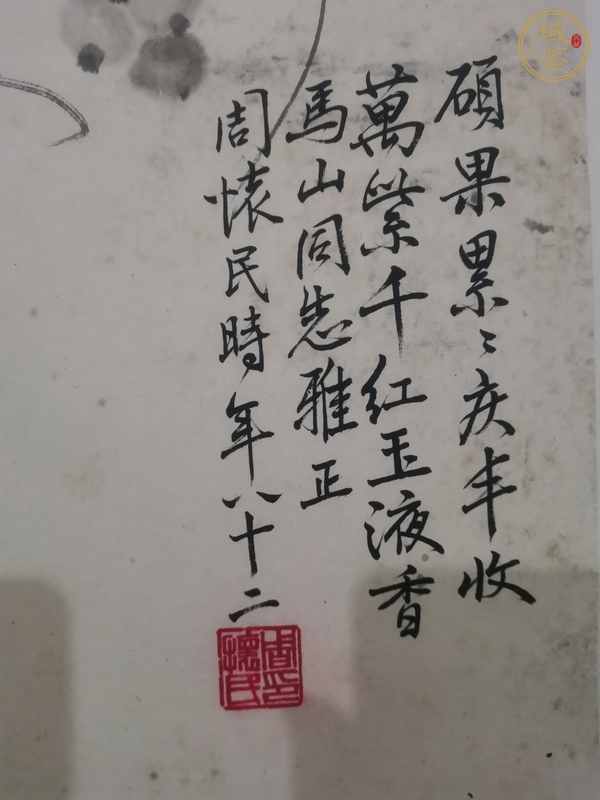 碩果累々庆丰收
萬紫千红玉液香
馬山同志雅正
周懷民時年八十二
周印懷民
域鉴